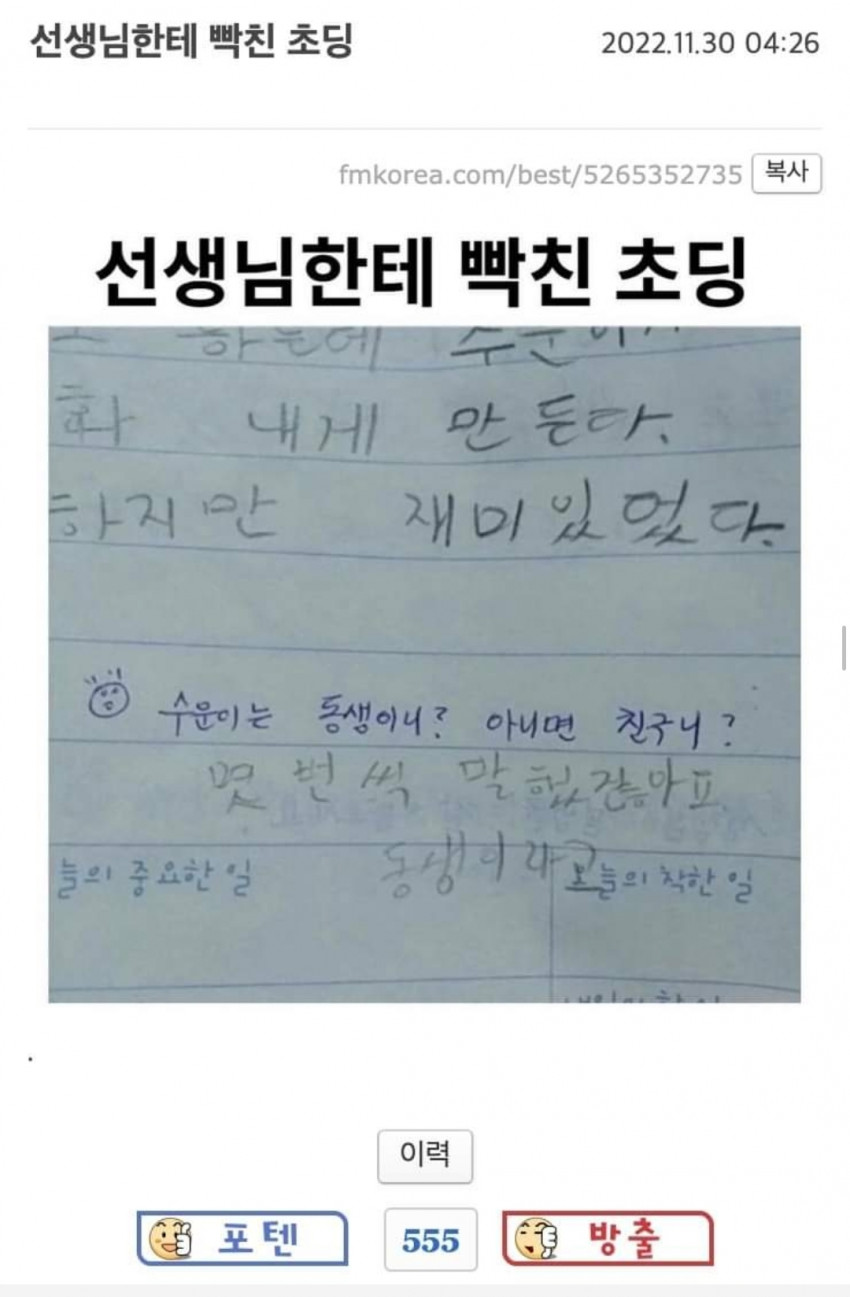 선생님한테 빡친 초딩
2022.11.30 04:26
fmkorea.com/best/5265352735 복사
선생님한테 빡친 초딩
하는데 수운이
화 내게 만든다.
하지만 재미있었다.
수운이는 동생이니? 아니면 친구니?
몇 번씩 말 했잖아요
동생이라고
늘의 중요한 일
오늘의 착한 일
.
이력
포텐 555 방출